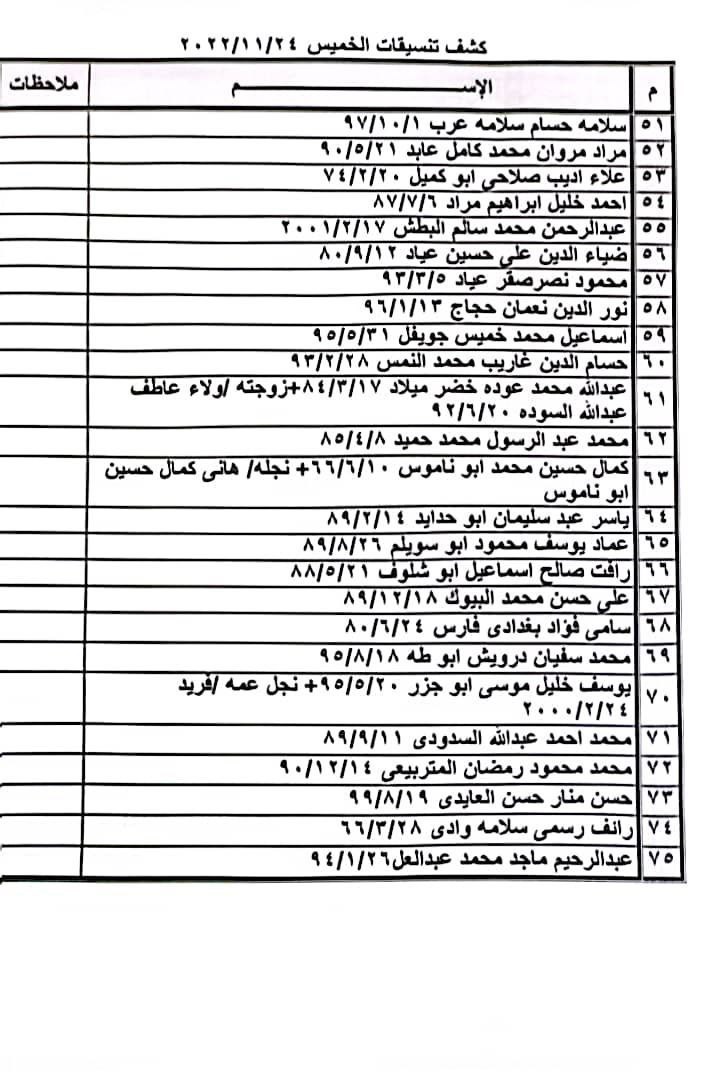 كشف تنسيقات الخميس ٢٠٢٢/١١/٢٤
م الإســـــــــــم ملاحظات
٥١ سلامه حسام سلامه عرب ٩٧/١٠/١
٥٢ مراد مروان محمد كامل عابد ٩٠/٥/٢١
٥٣ علاء اديب صلاحى ابو كميل ٧٤/٢/٢٠
٥٤ احمد خليل ابراهيم مراد ٨٧/٧/٦
٥٥ عبدالرحمن محمد سالم البطش ٢٠٠١/٢/١٧
٥٦ ضياء الدين على حسين عياد ٨٠/٩/١٢
٥٧ محمود نصرصقر عياد ٩٣/٣/٥
٥٨ نور الدين نعمان حجاج ٩٦/١/١٣
٥٩ اسماعيل محمد خميس جويفل ٩٥/٥/٣١
٦٠ حسام الدين غاريب محمد النمس ٩٣/٢/٢٨
٦١ عبدالله محمد عوده خضر ميلاد ٨٤/٣/١٧+زوجته /ولاء عاطف
عبدالله السوده ٩٢/٦/٢٠
٦٢ محمد عبد الرسول محمد حميد ٨٥/٤/٨
٦٣ كمال حسين محمد ابو ناموس ٦٦/٦/١٠+ نجله/ هانى كمال حسين
ابو ناموس
٦٤ ياسر عبد سليمان ابو حدايد ٨٩/٢/١٤
٦٥ عماد يوسف محمود ابو سويلم ٨٩/٨/٢٦
٦٦ رافت صالح اسماعيل ابو شلوف ٨٨/٥/٢١
٦٧ على حسن محمد البيوك ٨٩/١٢/١٨
٦٨ سامى فؤاد بغدادى فارس ٨٠/٦/٢٤
٦٩ محمد سفيان درويش ابو طه ٩٥/٨/١٨
٧٠ يوسف خليل موسى ابو جزر ٩٥/٥/٢٠+ نجل عمه /فريد
٢٠٠٠/٢/٢٤
٧١ محمد احمد عبدالله السدودى ٨٩/٩/١١
٧٢ محمد محمود رمضان المتربيعى ٩٠/١٢/١٤
٧٣ حسن منار حسن العايدى ٩٩/٨/١٩
٧٤ رائف رسمى سلامه وادى ٦٦/٣/٢٨
٧٥ عبدالرحيم ماجد محمد عبدالعل٩٤/١/٢٦